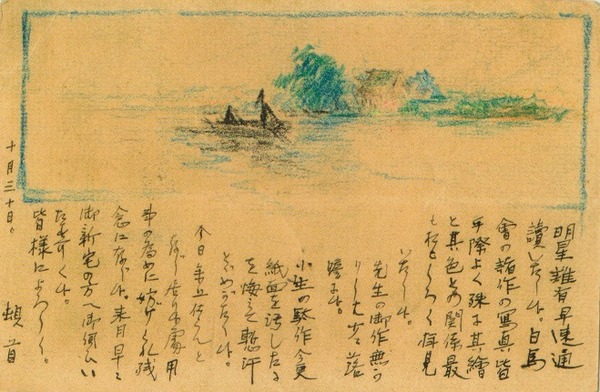 明星難有早速通
讀いたし候。白馬
會の諸作の寫真皆
手際よく殊に其繪
と其色との関係最
もおもしろく拝見
いたし候。
先生の御作無か
りしは少々落
膽に候。
小生の駄作今更
紙面を汚したる
を悔ひ慙汗
とめがたく候。
今日参上仕らんと
存じ居候處用
事の為めに妨げられ残
念に存じ候。来月早々
御新宅の方へ御伺ひい
たすべく候。
皆様によろしく。
頓首
十月三十日。